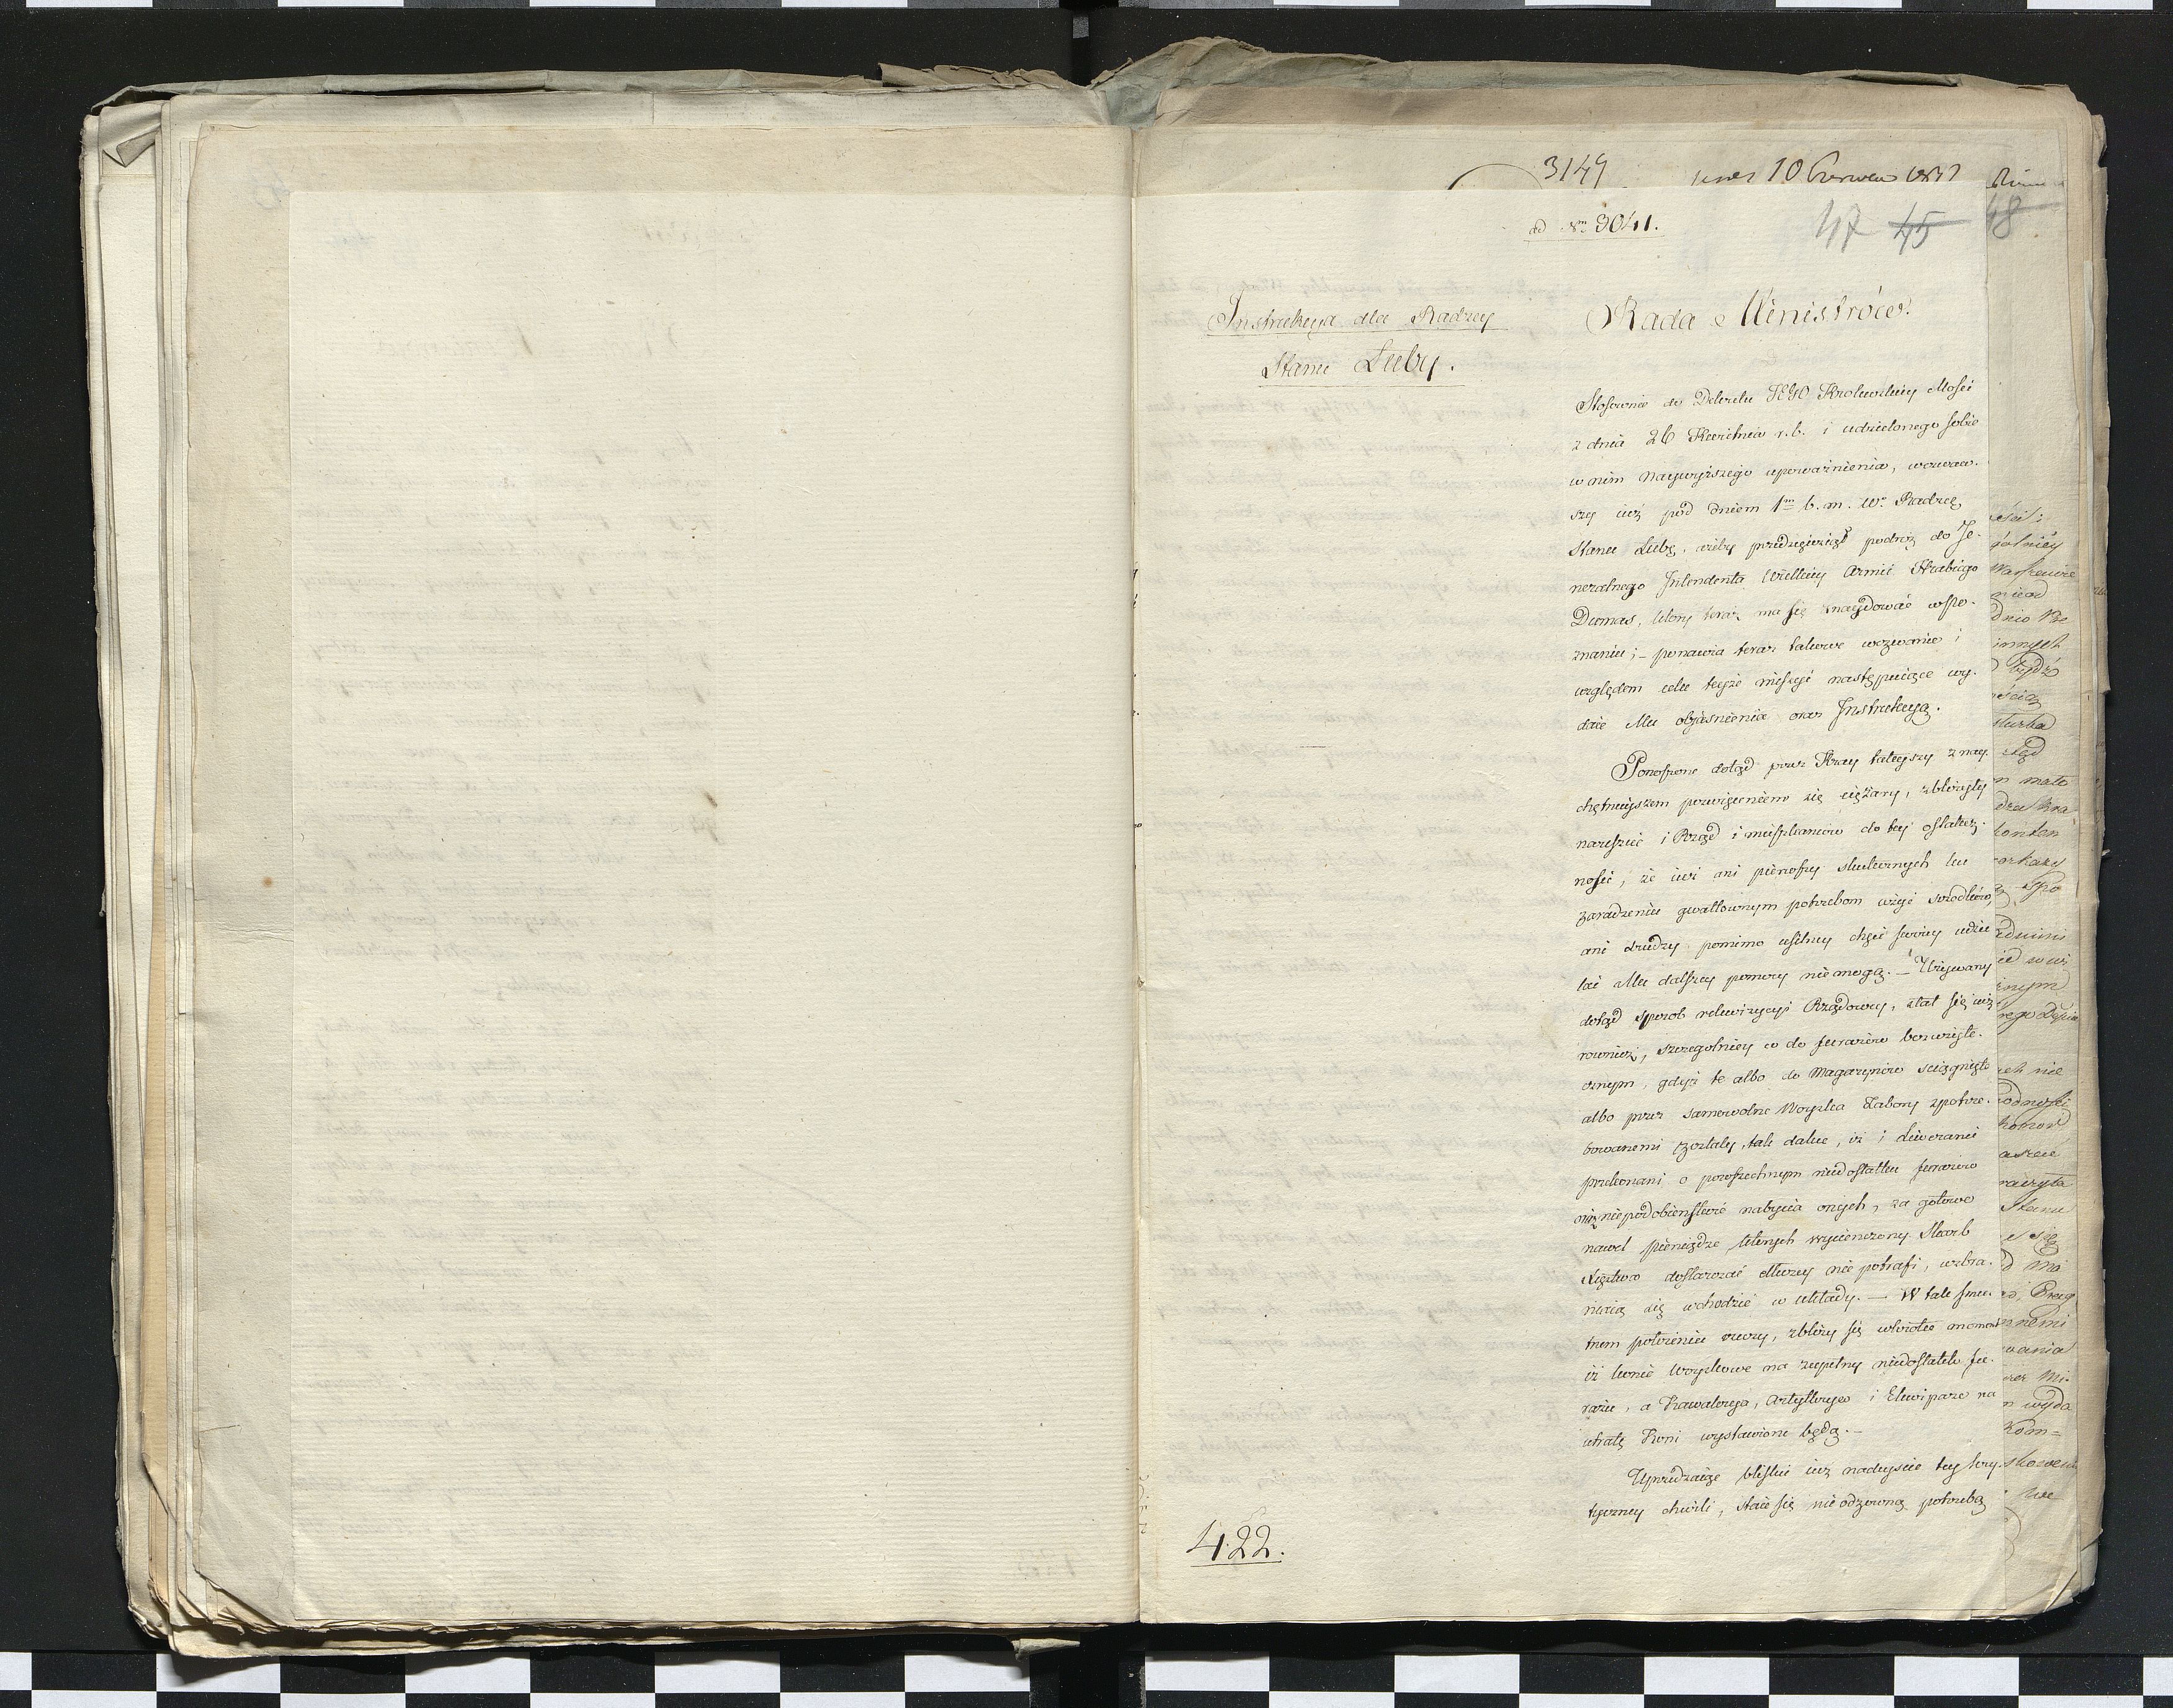 3149
10 Czerwca 1812
ad Nrm 3041.
47 45
48
Instrukcya dla Radzcy
Stanu Łuby.
Rada Ministrów.
Stosownie do Dekretu JEGO Krolewskiey Mości
z dnia 26 Kwietnia r. b. i udzielonego sobie
w nim naywyższego upoważnienia, wezwaw-
szy iuż pod dniem 1m b. m. Wo Radzcę
Stanu Łubę, ażeby przedsięwziął podróż do Je-
neralnego Intendenta Wielkiey Armii Hrabiego
Dumas, ktory teraz ma się znaydować w Po-
znaniu; – ponawia teraz takowe wezwanie i
względem celu teyże missyi następuiące wy-
daie Mu obiaśnienia oraz Instrukcyą.
Ponoszone dotąd przez Kray tuteyszy z nay-
chętnieyszem poświęceniem się ciężary, zbliżyły
nareszcie i Rząd i mieszkańców do tey ostatecz-
ności, że iuż ani pierwszy skutecznych ku
zaradzeniu gwałtownym potrzebom użyć srzodków,
ani drudzy pomimo usilney chęci swoiey udzie
lać Mu dalszey pomocy nie mogą. – Używany
dotąd sposob rekwizycyi Rządowey, stał się iuż
rownież, szczegolniey co do furażów bezużyte-
cznym, gdyż te albo do Magazynów sciągnięte
albo przez samowolne Woyska Zabory spotrze-
bowanemi zostały, tak dalece, iż i Liweranci
przekonani o powszechnym niedostatku furażów
niepodobieństwie nabycia onych, za gotowe
nawet pieniądze, ktorych wycieńczony Skarb
Xięztwa dostarczać dłużey nie potrafi, wzbra-
niaią się wchodzić w układy. – W tak smu-
tnem położeniu rzeczy, zbliży się wkrotce moment
iż konie Woyskowe na zupełny niedostatek fu-
rażu, a Kawalerya, Artylerya i Ekwipaże na
utratę Koni wystawione będą. –
Uprzedzaiąc bliskie iuż nadeyście tey kry-
tyczney chwili, staie się nieodzowną potrzebą
422.